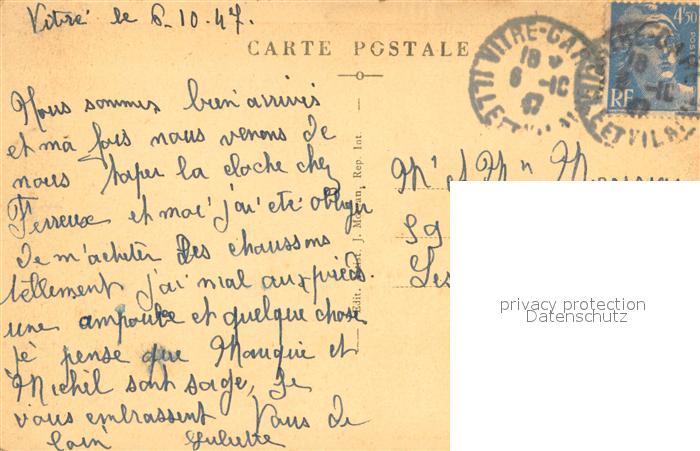 Vitré le 6-10.47.
CARTE POSTALE
VITRE-GARE
18
6 -10
47
ILLE ET VILAINE
4F50
POSTES
RF
Nous sommes bien arrivés
et ma fois nous venons de
nous taper la cloche chez
Ferreux et moi j'ai été obliger
de m'acheter des chaussons
tellement j'ai mal aux pieds.
une ampoule et quelque chose
je pense que Mauguie et
Michel sont sage, Je
vous embrassent Vous de
loin Juliette
Edit. J. Rep. Int.
Mr et Mme
59
Les
privacy protection
Datenschutz